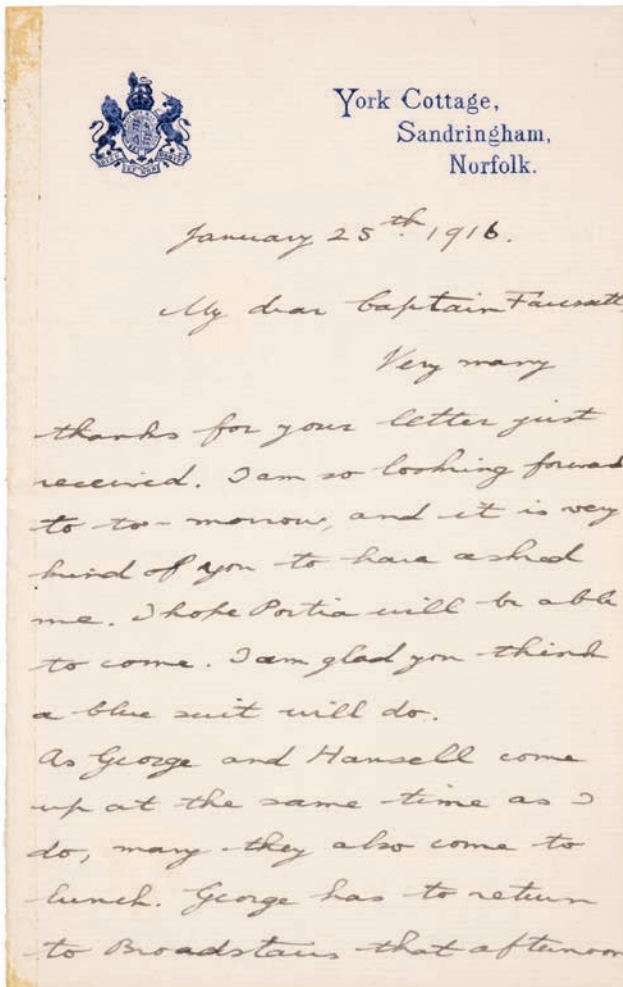 York Cottage,
Sandringham,
Norfolk.
January 25th. 1916.
My dear Captain Fausset,
Very many
thanks for your letter just
received. I am so looking forward
to to-morrow, and it is very
kind of you to have asked
me. I hope Portia will be able
to come. I am glad you think
a blue suit will do.
As George and Hansell come
up at the same time as I
do, many they also come to
lunch. George has to return
to Broadstairs that afternoon